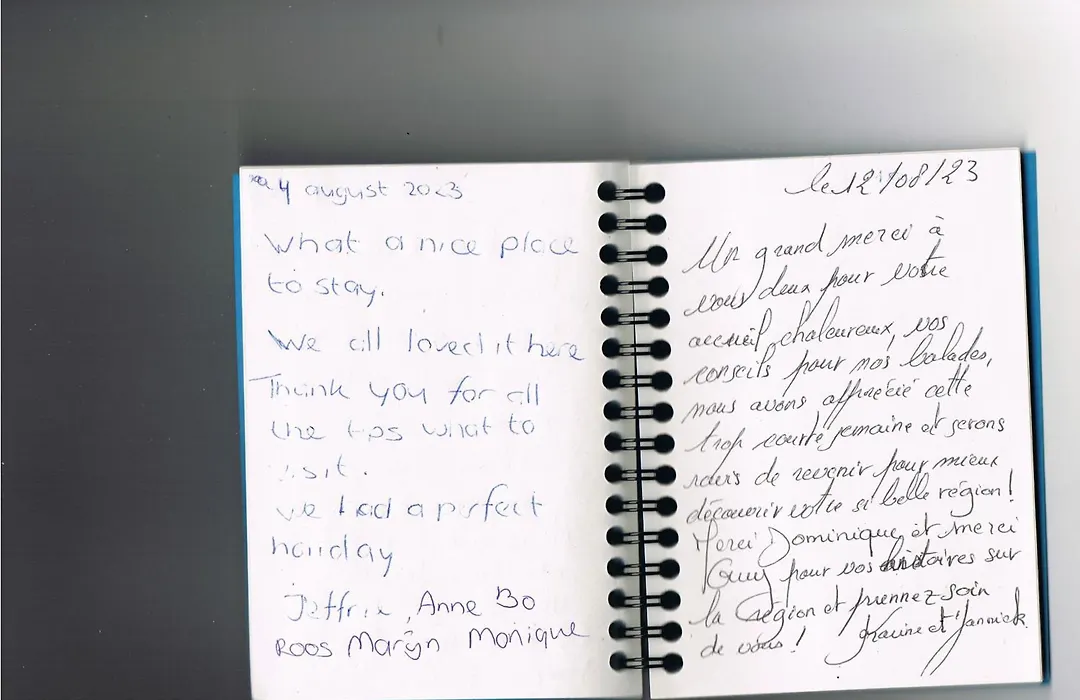 4 august 2023
What a nice place
to stay.
We all loved it here
Thank you for all
the tips what to
visit.
we had a perfect
holiday
Anne Bo
Roos Marijn Monique
le 12/08/23
Un grand merci à
vous deux pour votre
accueil chaleureux, vos
conseils pour nos balades,
nous avons apprécié cette
trop courte semaine et serons
ravis de revenir pour mieux
découvrir votre si belle région!
Merci Dominique et merci
Guy pour vos histoires sur
la région et prennez soin
de vous! Karine et Yannick